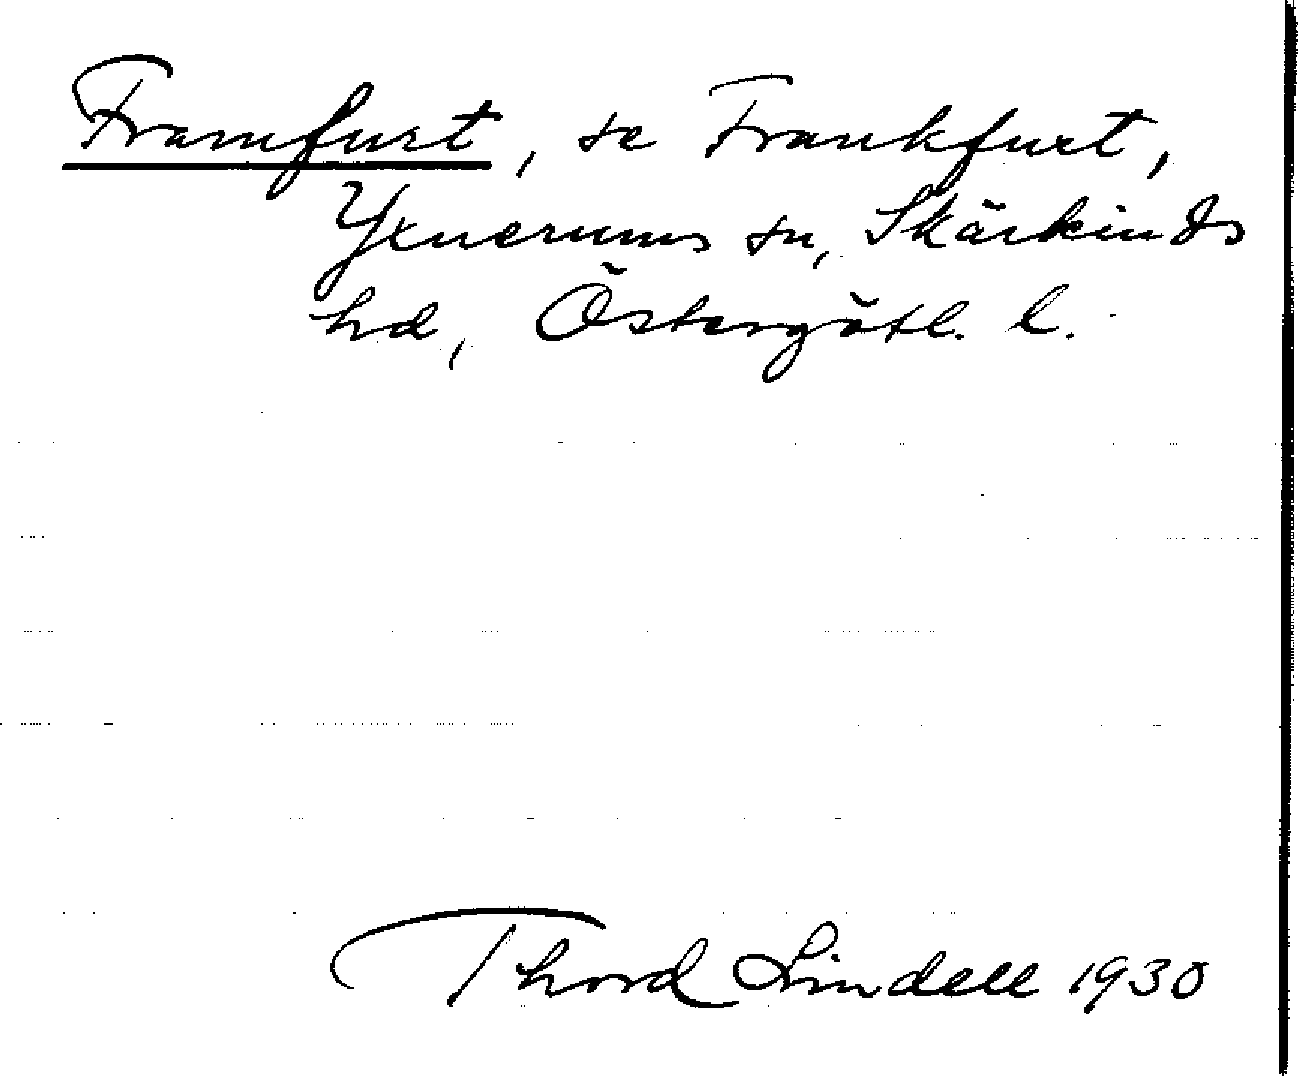 Framfurt, se Frankfurt,
Yxnerums sn, Skärkinds
hd, Östergötl. l.
Thord Lindell 1930